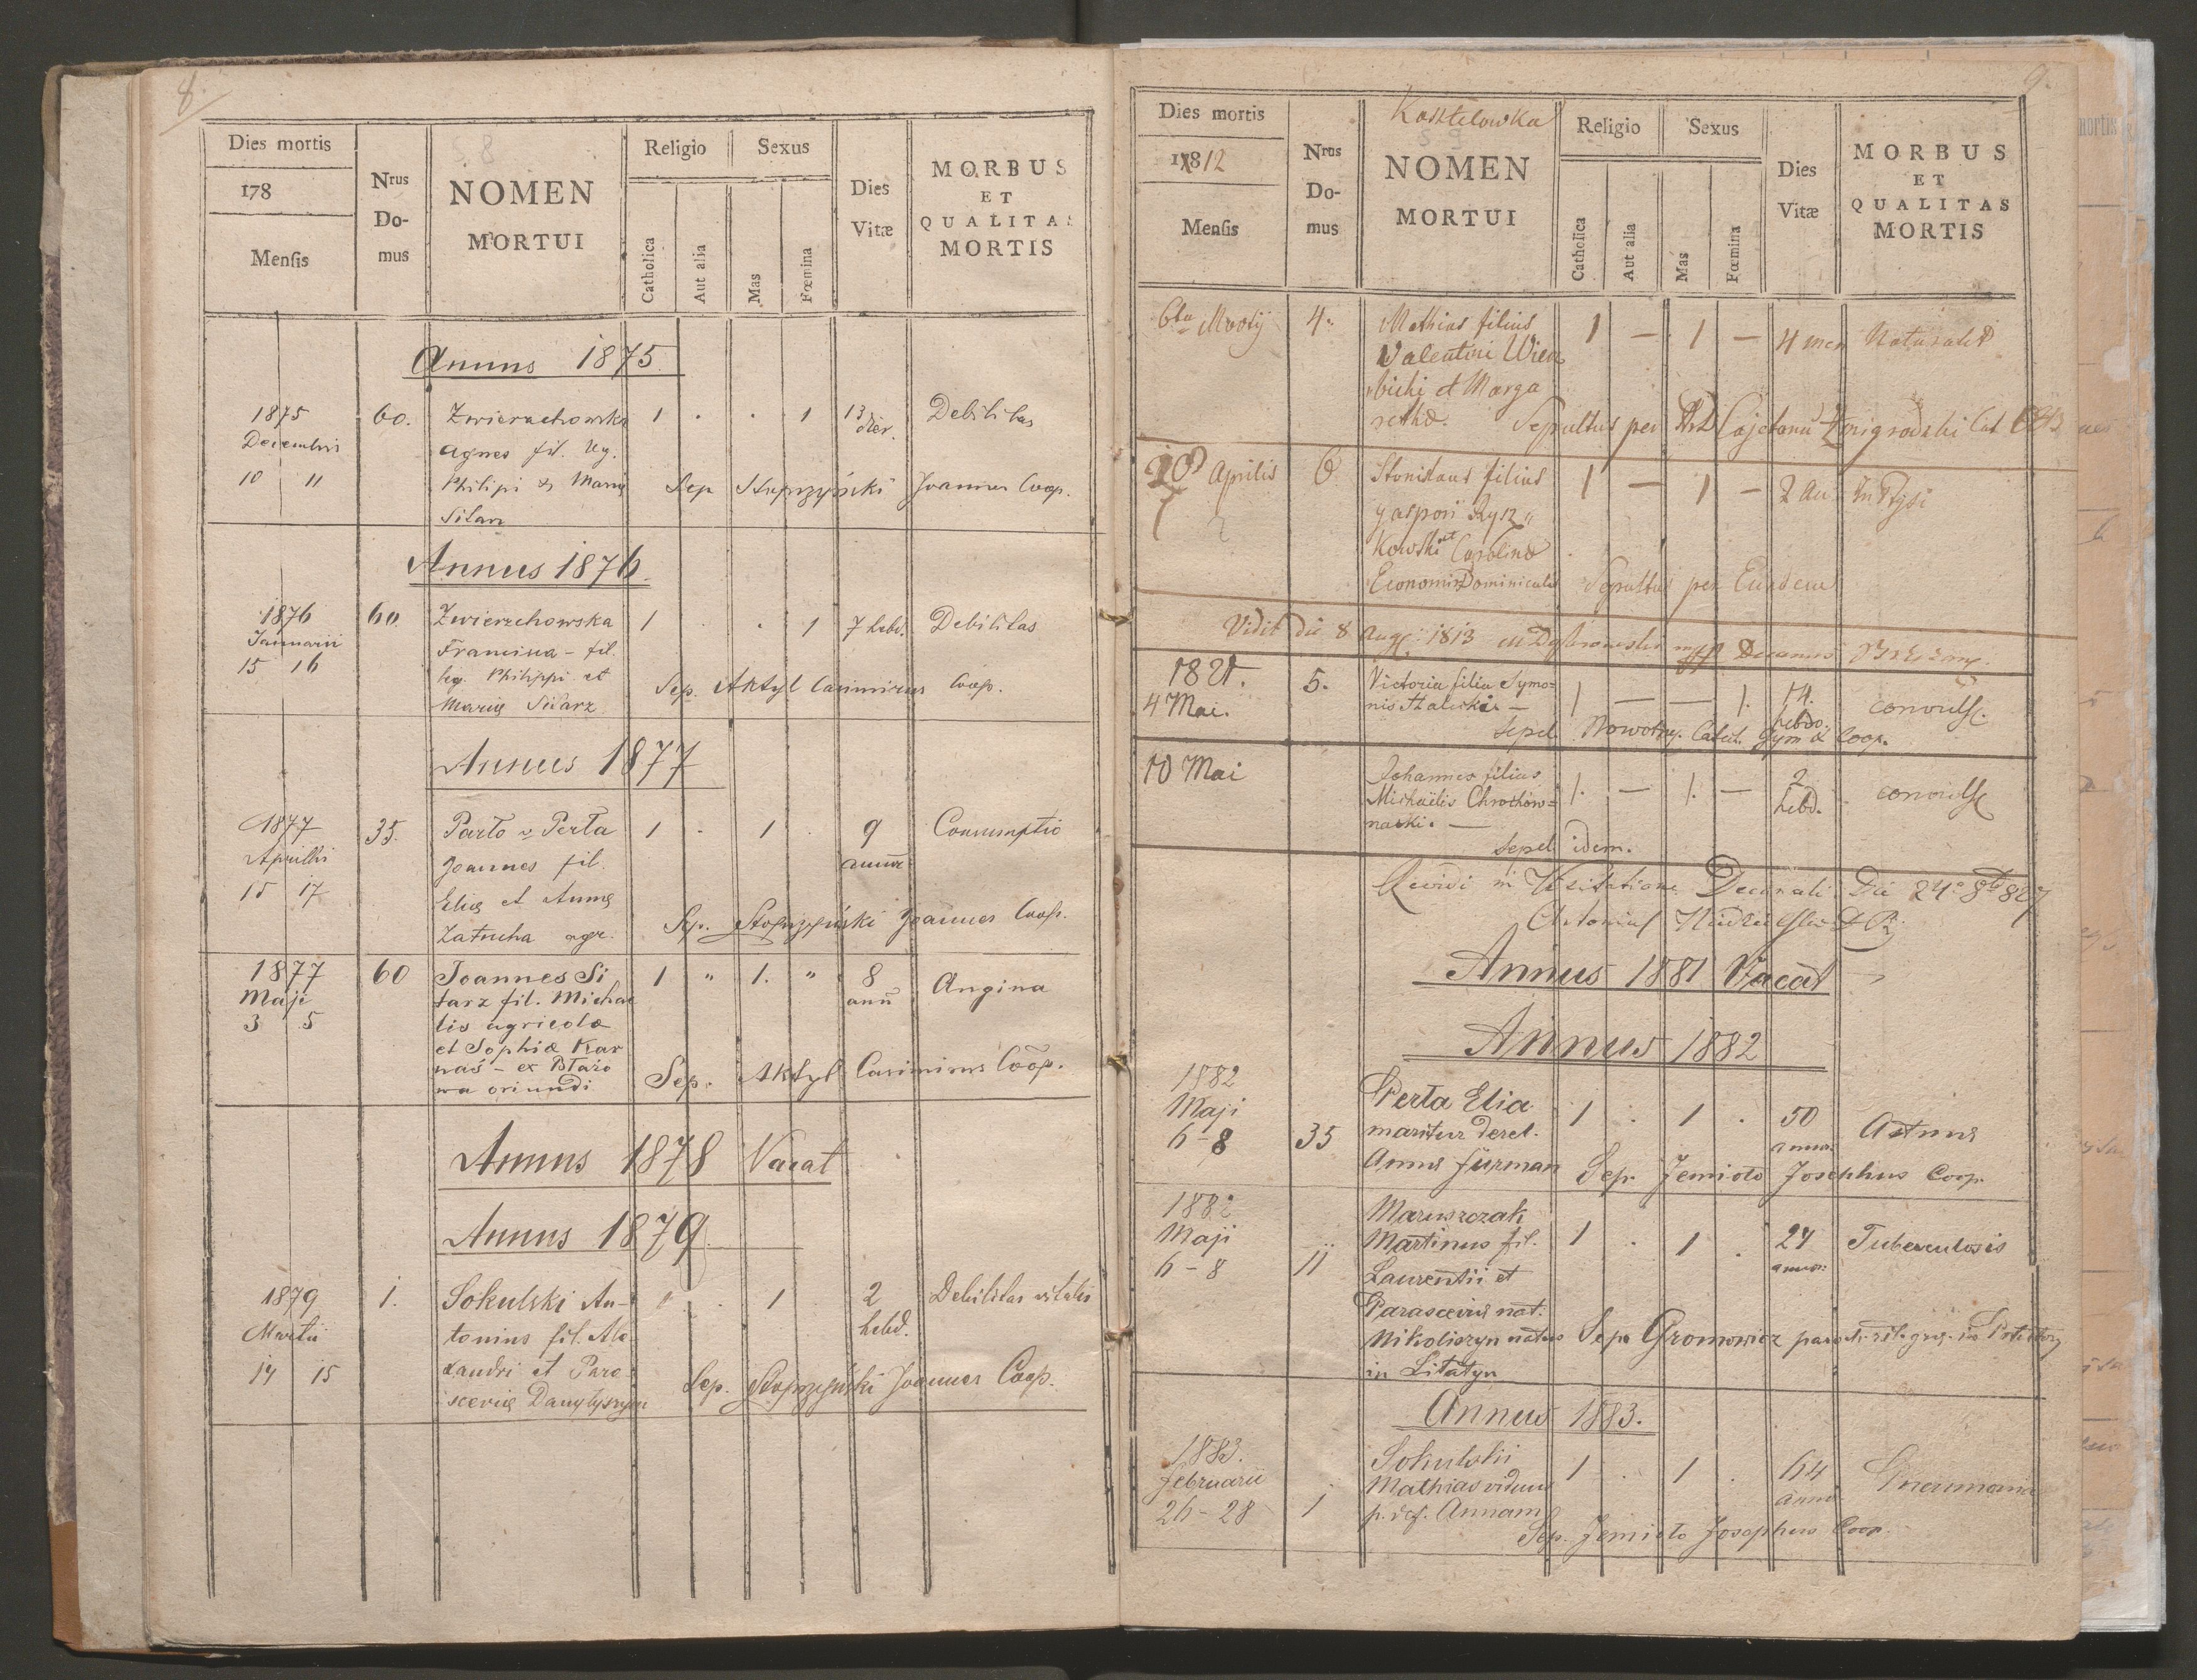 8
Dies mortis
178
Mensis
Nrus
Do-
mus
NOMEN
MORTUI
Religio
Catholica
Aut alia
Sexus
Mas
Fœmina
Dies
Vitæ
MORBUS
ET
QUALITAS
MORTIS
Annus 1875.
1875
Decembris
10 11
60.
Zwierzchowska
Agnes fil. leg.
Philipi & Mariæ
Sitarz
1 . . 1
13 dier.
Debilitas
Sep Joannes Coop.
Annus 1876.
1876
Januarii
15 16
60
Zwierzchowska
Francisca - fil.
leg. Philippi et
Mariæ Sitarz
1 . . 1
7 hebd.
Debilitas
Sep. Aktyl Casimirus Coop.
Annus 1877
1877
Aprilis
15 17
35.
Parto v Perta
Joannes fil.
Eliæ et Annæ
Zatucha agr.
1 . 1 .
9
Consumptio
Sep. Joannes Coop.
1877
Maji
3 5
60
Joannes Si
tarz fil. Michae
lis agricolæ
et Sophiæ Kar
naś - ex
oriundi
1 " 1. "
8
anń
Angina
Sep. Aktyl Casimirus Coop.
Annus 1878 Vacat
Annus 1879.
1879
Martii
14 15
1.
Sokulski An-
tonius fil. Ale
xandri et Para
sceviæ Danylyszyn
" . 1
2
hebd.
Debilitas vitalis
Sep. Joannes Coop.
9.
Dies mortis
1812
Mensis
Nrus
Do-
mus
Kosztelowka
NOMEN
MORTUI
Religio
Catholica
Aut alia
Sexus
Mas
Fœmina
Dies
Vitæ
MORBUS
ET
QUALITAS
MORTIS
6ta
4
Mathias filius
Valentini Wierz
bicki et Marga
rethæ.
1 — 1 —
4 men
Naturalis
Sepultus per Cajetanu Zmigrodzki Cat
20 Aprilis
6
Stanislaus filius
Gaspari Rysz
kowski et Carolinæ
Economi Dominicalis
1 — 1 —
2 an
Sepultus per Eundem
Vidit die 8 Aug. 1813 Decanus
1821.
4 Mai.
5.
Victoria filia Symo=
nis —
1 — — 1.
14.
hebdo.
convuls.
Sepel. Nowotny. Catech. Gym & Coop.
10 Mai
Johannes filius
Michaëlis
1. — 1. —
2
hebd.
convuls
Sepel idem.
Revidi in Visitatione Decanali Die 24 827
Annus 1881 Vacat
Annus 1882
1882
Maji
6 - 8
35
Perta Elia
maritus derel.
Annæ Furman
1 . 1 .
50
annor.
Sep. Jemioło Josephus Coop.
1882
Maji
6 - 8
11
Maruszczak
Martinus fil.
Laurentii et
Parasceviæ nat.
Mikoliszyn natus
in Litatyn
1 . 1 .
24
annor.
Tuberculosis
Sep. Gromowicz
Annus 1883.
1883.
Februarii
26 - 28
1
Sokulski
Mathias viduus
p. def. Annam
1 . 1 .
64
Pneumonia
Sep. Jemioło Josephus Coop.